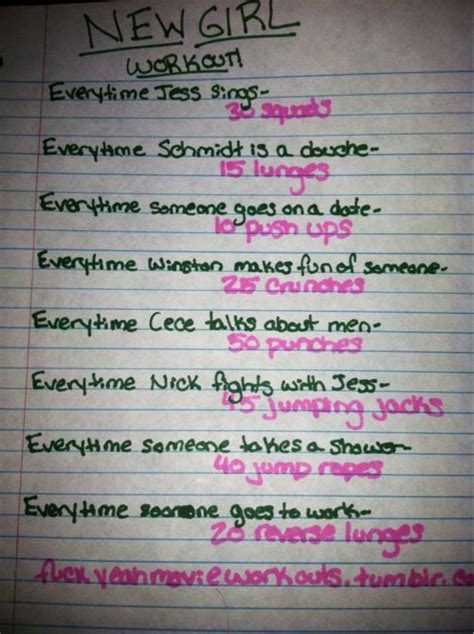 NEW GIRL
WORKOUT!
Everytime Jess Sings-
30 squats
Everytime Schmidt is a douche-
15 lunges
Everytime someone goes on a date-
10 push ups
Everytime Winston makes fun of someone-
25 crunches
Everytime Cece talks about men-
50 punches
Everytime Nick fights with Jess-
45 jumping jacks
Everytime someone takes a shower-
40 jump ropes
Everytime someone goes to work-
20 reverse lunges
fuckyeahmovieworkouts.tumblr.co